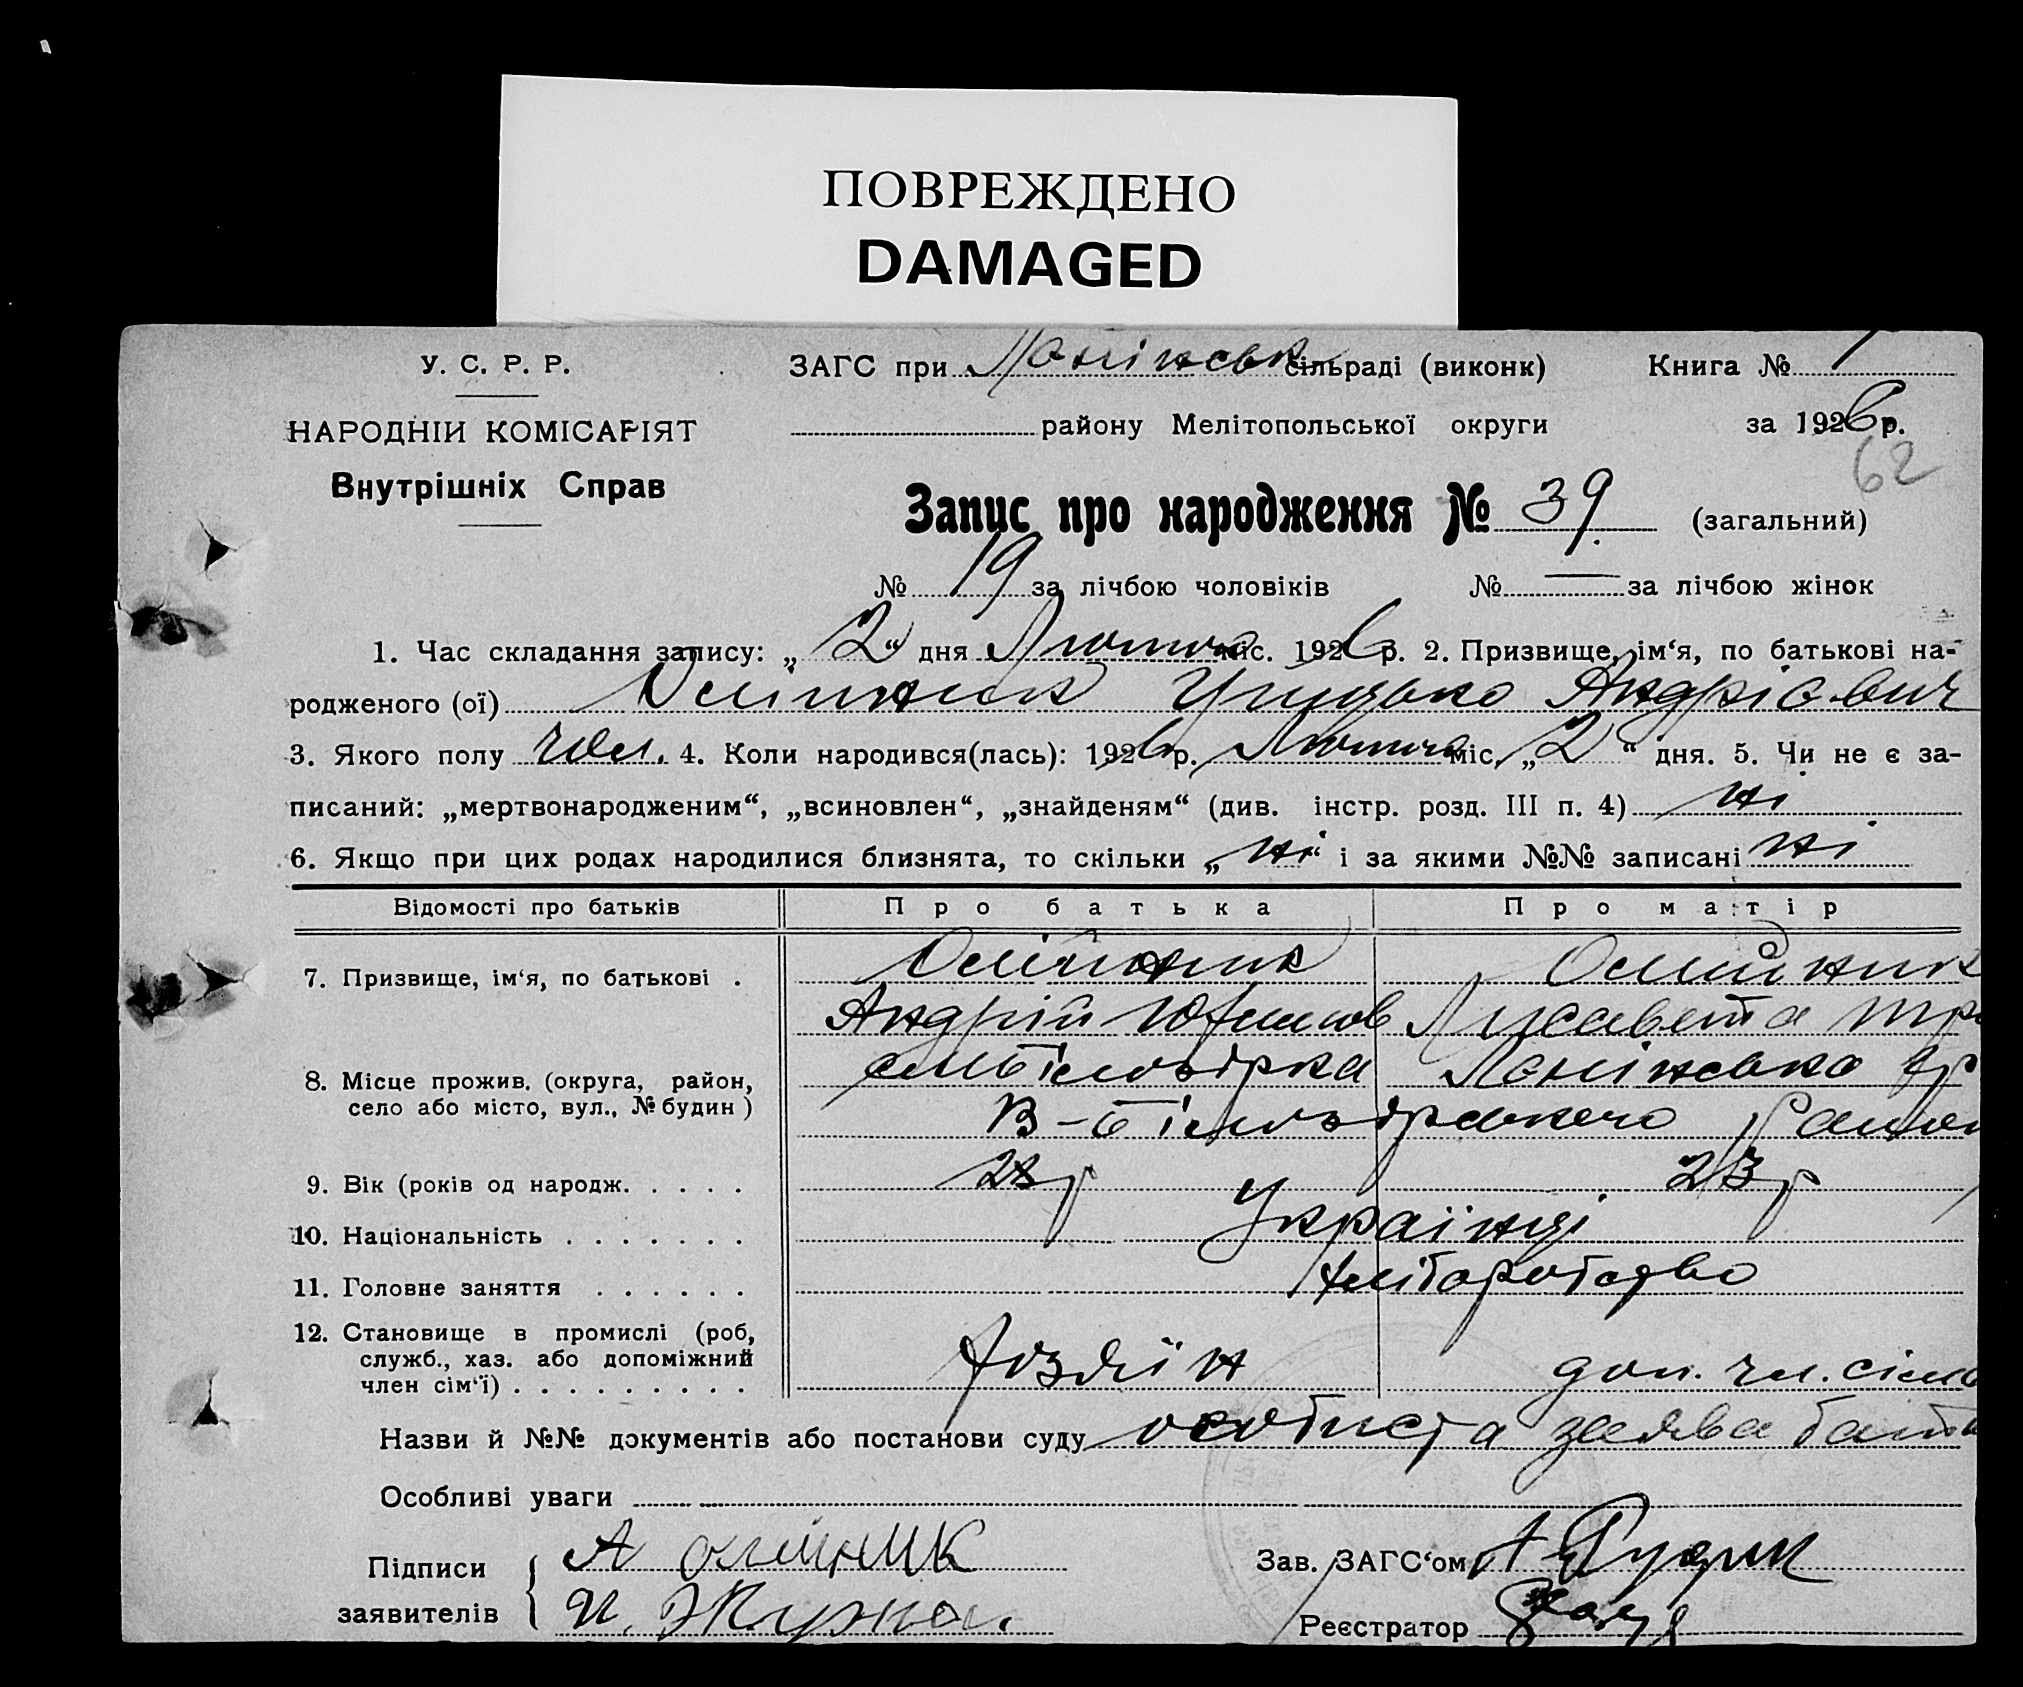 ПОВРЕЖДЕНО
DAMAGED
У. С. Р. Р.
ЗАГС при Ленінськ сільраді (виконк) Книга № 1
НАРОДНІЙ КОМІСАРІЯТ
району Мелітопольської округи за 1926 р.
62
Внутрішніх Справ
Запис про народження № 39. (загальний)
№ 19 за лічбою чоловіків № — за лічбою жінок
1. Час складання запису: „2“ дня Лютого міс. 1926 р. 2. Призвище, ім‘я, по батькові на-
родженого (ої) Олійник Грицько Андрієвич
3. Якого полу чол. 4. Коли народився(лась): 1926 р. Лютого міс. „2“ дня. 5. Чи не є за-
писаний: „мертвонародженим“, „всиновлен“, „знайденям“ (див. інстр. розд. III п. 4) ні
6. Якщо при цих родах народилися близнята, то скільки „ні“ і за якими №№ записані ні
Відомості про батьків Про батька Про матір
7. Призвище, ім‘я, по батькові . Олійник Олійник
Андрій Юхимов Лисавета Тро
8. Місце прожив. (округа, район, село або місто, вул., № будин )
Білозірка Ленінсько
В-Білозірського Район
9. Вік (років од народж. . . . . 23 р 23 р
10. Національність . . . . . . . Українці
11. Головне заняття . . . . . . хліборобство
12. Становище в промислі (роб,
служб., хаз. або допоміжний
член сім‘ї) . . . . . . . . . хозяїн доп. чл. сімь
Назви й №№ документів або постанови суду особиста заява бать
Особливі уваги
Підписи А олійник Зав. ЗАГС‘ом
заявителів Реєстратор